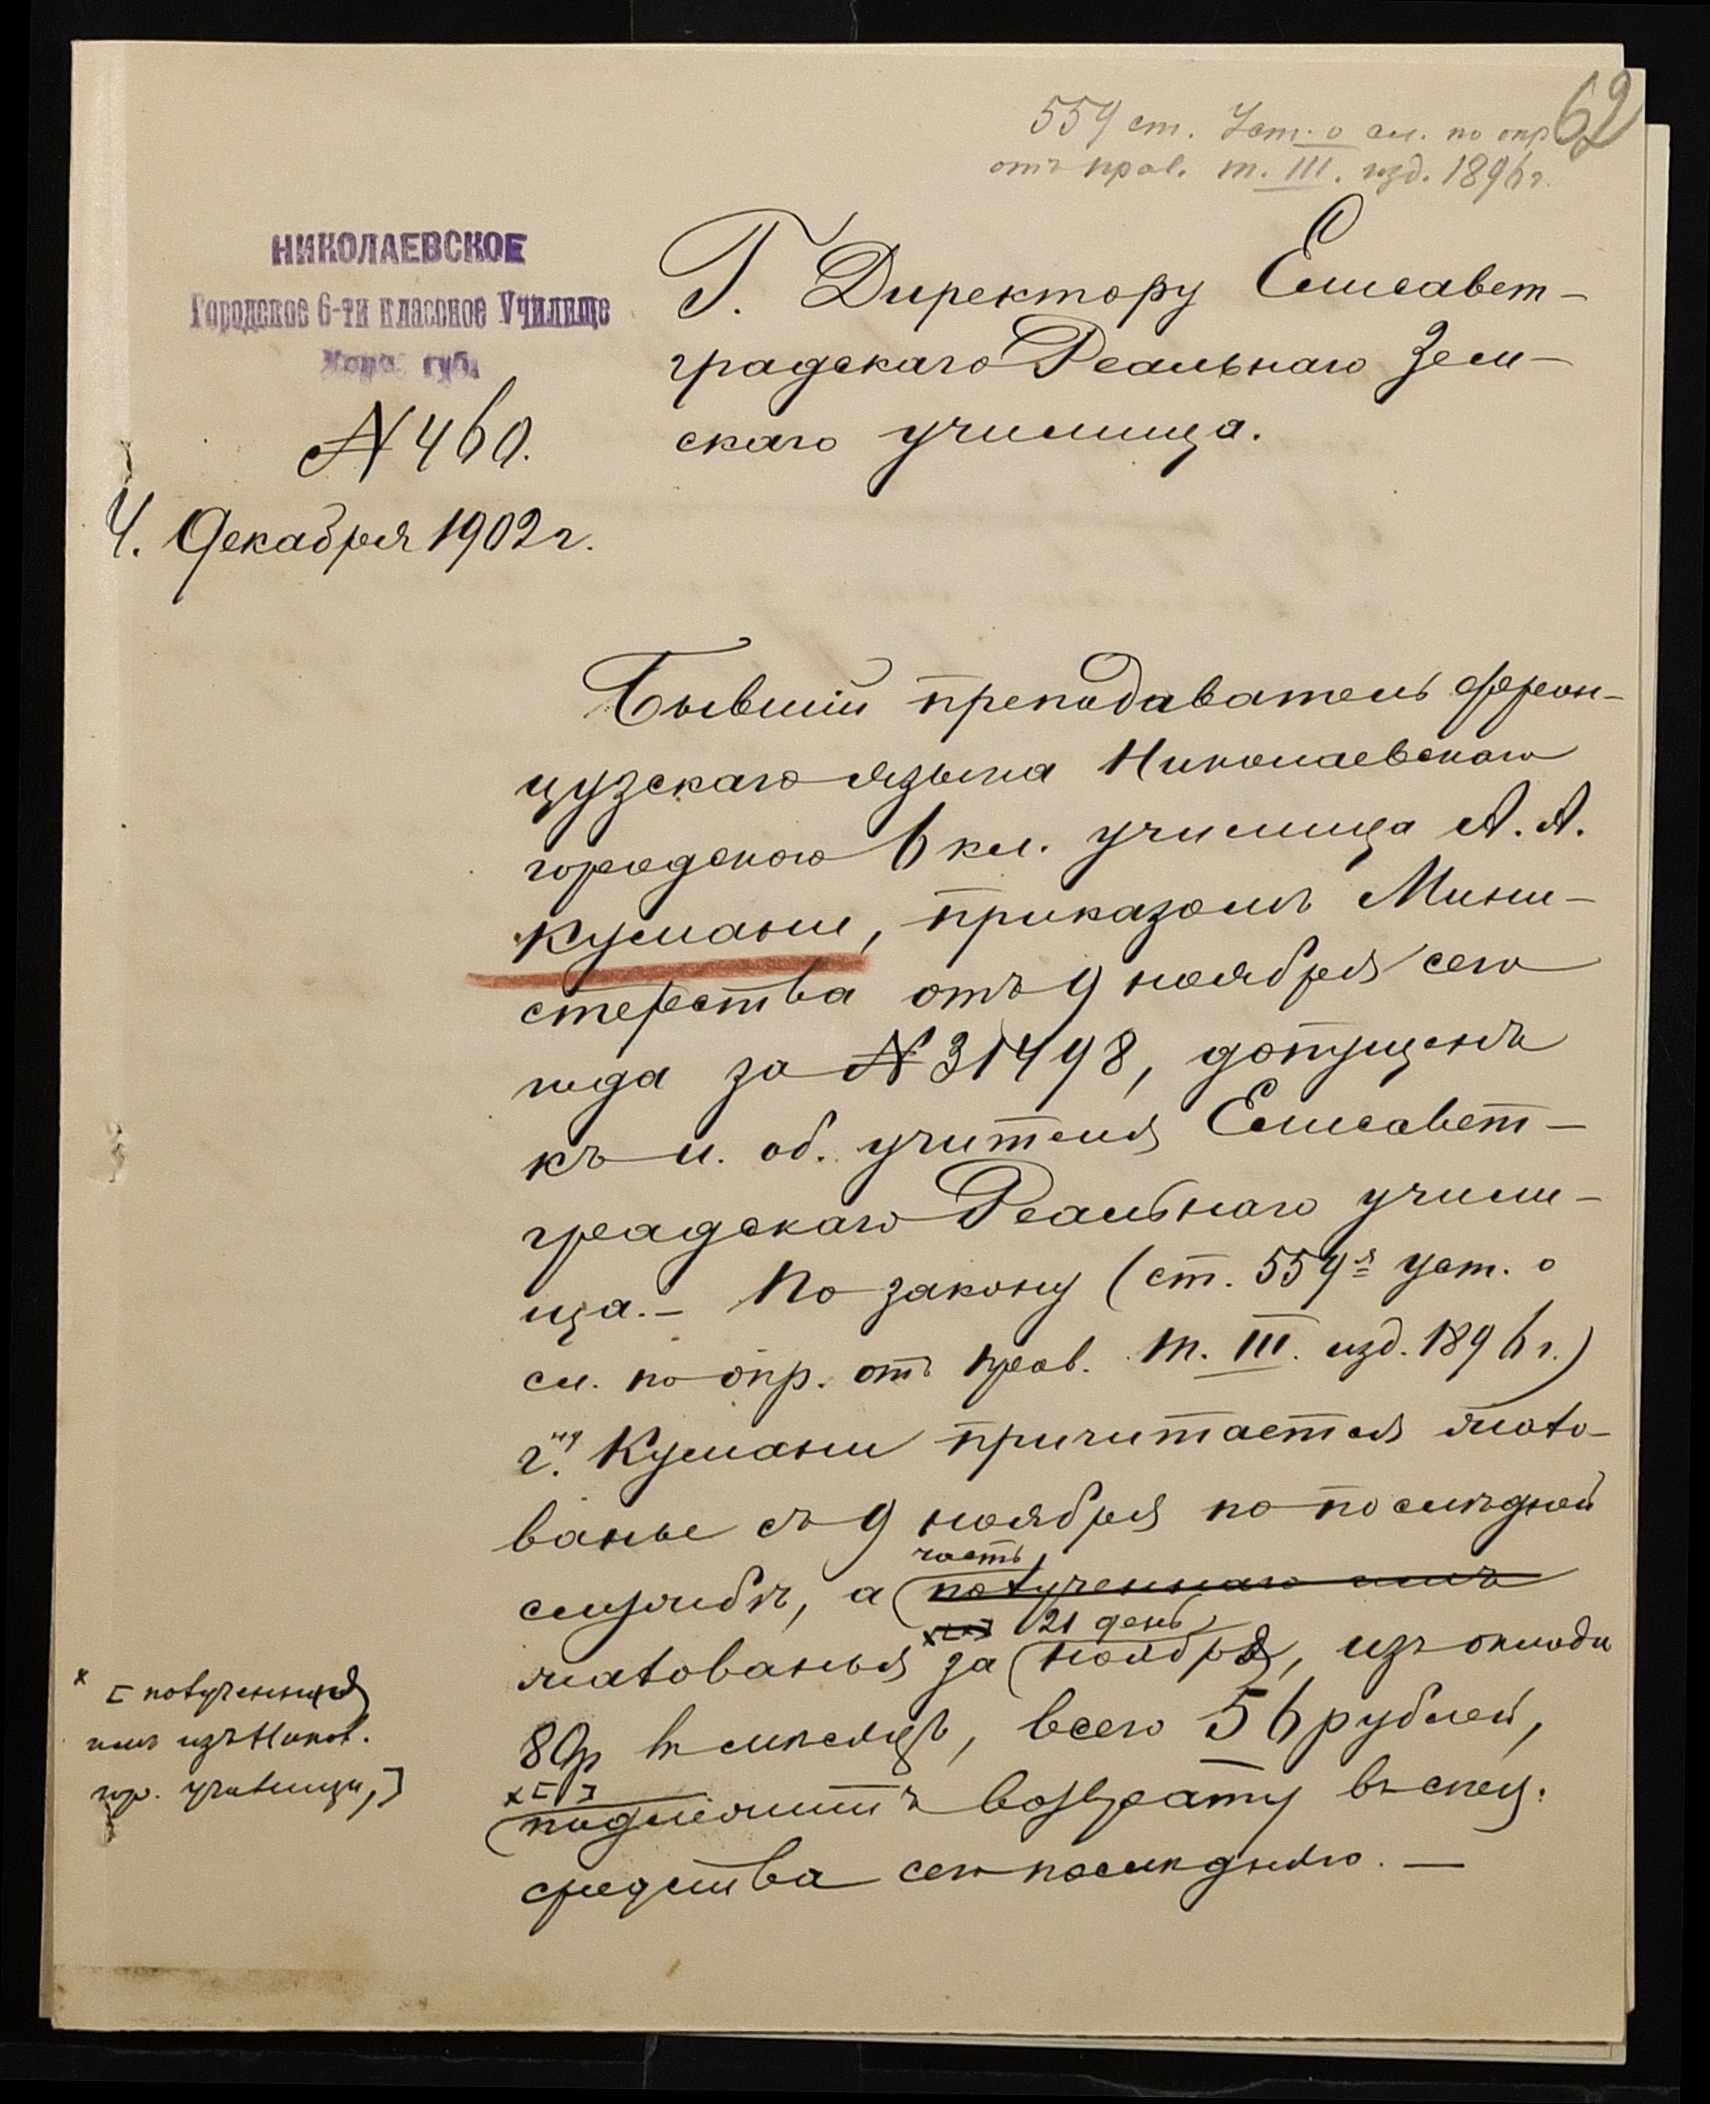 62
559 ст. Уст. о сл. по опр.
отъ прав. т. III. изд. 1896 г.
НИКОЛАЕВСКОЕ
Городское 6-ти классное Училище
губ.
№ 460.
4. Декабря 1902 г.
Г. Директору Елисавет-
градскаго Реальнаго Зем-
скаго училища.
Бывшій преподаватель фран-
цузскаго языка Николаевскаго
городского 6 кл. училища А. А.
Кумани, приказомъ Мини-
стерства отъ 9 ноября сего
года за № 31498, допущенъ
къ и. об. учителя Елисавет-
градскаго Реальнаго учили-
ща. — По закону (ст. 559я уст. о
сл. по опр. отъ прав. т. III. изд. 1896 г.)
г. Кумани причитается жало-
ванье съ 9 ноября по послѣдней
службѣ, а часть полученнаго имъ
жалованья за 21 день ноября, изъ оклада
80 р въ мѣсяцъ, всего 56 рублей,
х[ ]
подлежитъ возврату въ спец.
средства сего послѣдняго. —
х [полученныя
имъ изъ Никол.
гор. училища,]